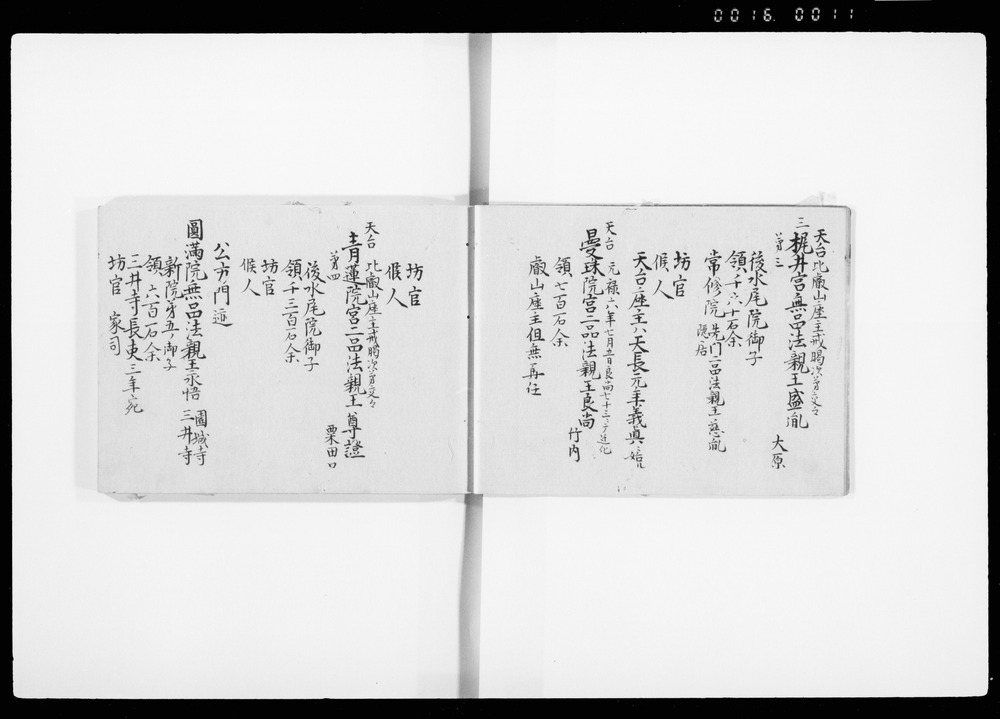 0016. 0011
天台 比叡山座主戒臈次第交々
三 梶井宮無品法親王盛胤 大原
第三
後水尾院御子
領千六十石余
常修院 先門二品法親王慈胤 隠居
坊官
候人
天台座主ハ天長元年義真始
天台 元禄六年七月五日良尚七十二ニテ遷化
曼珠院宮二品法親王良尚 竹内
領七百石余
叡山座主但無再任
坊官
候人
天台 比叡山座主戒臈次第交々
青蓮院宮二品法親王尊證 粟田口
第四
後水尾院御子
領千三百石余
坊官
候人
公方門迹
圓滿院無品法親王永悟 園城寺 三井寺
新院第五ノ御子
領六百石余
三井寺長吏三年宛
坊官 家司